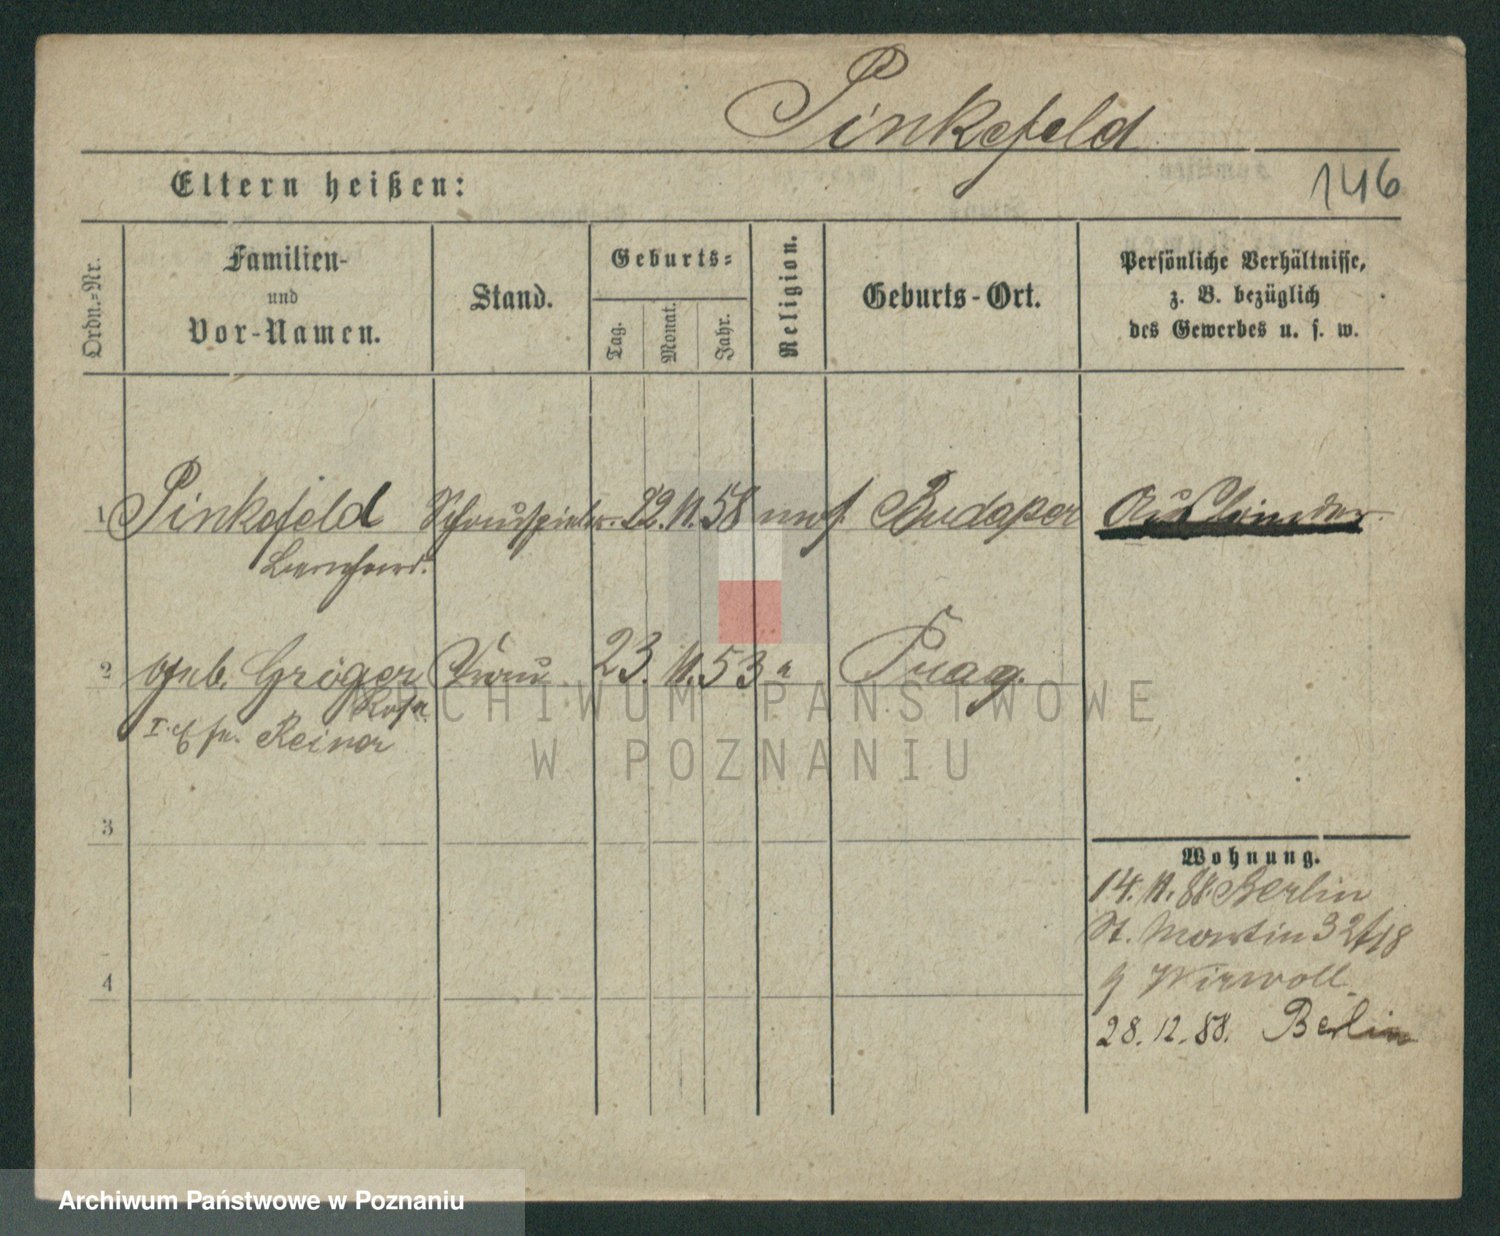 Pinkefeld
Eltern heißen:
146
Ordn.-Nr.
Familien-
und
Vor-Namen.
Stand.
Geburts-
Tag.
Monat.
Jahr.
Religion.
Geburts-Ort.
Persönliche Verhältnisse,
z. B. bezüglich
des Gewerbes u. s. w.
1 Pinkefeld Schauspieler. 22. 11. 58 mos. Budapest Ausländer
Bernhard.
2 geb. Gröger Frau 23. 11. 53 " Prag.
Rosa
Reiner
3
4
Wohnung.
14. 11. 88. Berlin
St. Martin 32/18
28. 12. 88. Berlin
ARCHIWUM PAŃSTWOWE
W POZNANIU
Archiwum Państwowe w Poznaniu